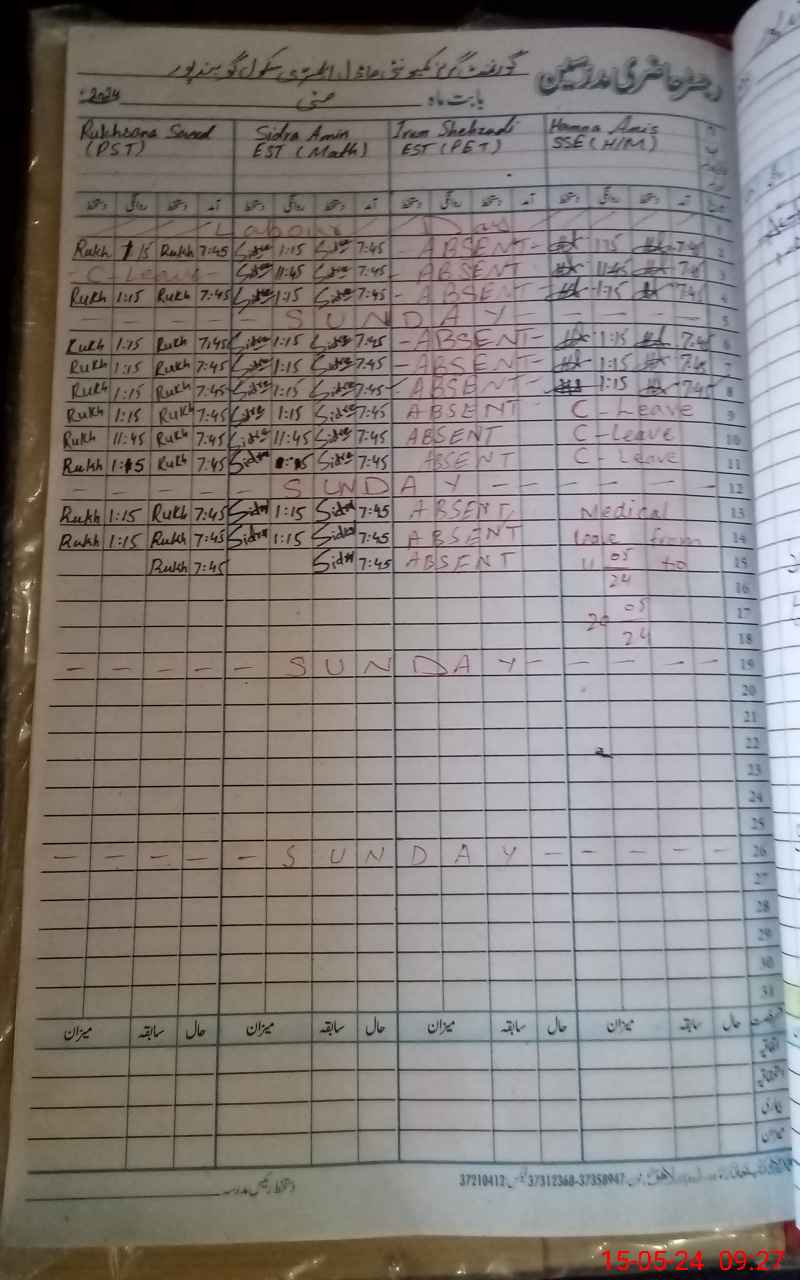 رجسٹر حاضری مدرسین گورنمنٹ گرلز کمیونٹی ماڈل ایلیمنٹری سکول گوبند پور
بابت ماہ مئی 2024ء
Rukhsana Saeed Sidra Amin Irum Shehzadi Hamna Anis
(PST) EST (Math) EST (PET) SSE (H/M)
دستخط روانگی دستخط آمد دستخط روانگی دستخط آمد دستخط روانگی دستخط آمد دستخط روانگی دستخط آمد
Labour Day 1
Rukh 1:15 Rukh 7:45 Sidra 1:15 Sidra 7:45 - ABSENT - 1:15 7:45 2
- C - Leave - Sidra 11:45 Sidra 7:45 - ABSENT 11:45 7:45 3
Rukh 1:15 Rukh 7:45 Sidra 1:15 Sidra 7:45 - ABSENT - 1:15 7:45 4
- - - - - S U N D A Y - - - - - 5
Rukh 1:15 Rukh 7:45 Sidra 1:15 Sidra 7:45 - ABSENT - 1:15 7:45 6
Rukh 1:15 Rukh 7:45 Sidra 1:15 Sidra 7:45 - ABSENT - 1:15 7:45 7
Rukh 1:15 Rukh 7:45 Sidra 1:15 Sidra 7:45 ABSENT - 1:15 7:45 8
Rukh 1:15 Rukh 7:45 Sidra 1:15 Sidra 7:45 ABSENT C - Leave 9
Rukh 11:45 Rukh 7:45 Sidra 11:45 Sidra 7:45 ABSENT C - Leave 10
Rukh 1:15 Rukh 7:45 Sidra 1:15 Sidra 7:45 ABSENT C - Leave 11
- - - - - S U N D A Y - - - - - 12
Rukh 1:15 Rukh 7:45 Sidra 1:15 Sidra 7:45 ABSENT Medical 13
Rukh 1:15 Rukh 7:45 Sidra 1:15 Sidra 7:45 ABSENT leave from 14
Rukh 7:45 Sidra 7:45 ABSENT 05 to 15
24 16
05 17
24 18
- - - - - S U N D A Y - - - - - 19
20
21
22
23
24
25
- - - - - S U N D A Y - - - - - 26
27
28
29
30
31
میزان سابقہ حال میزان سابقہ حال میزان سابقہ حال میزان سابقہ حال
اتفاقیہ
بیماری
میزان
37210412 37312360-37358947
دستخط رئیس مدرسہ
15-05-24 09:27